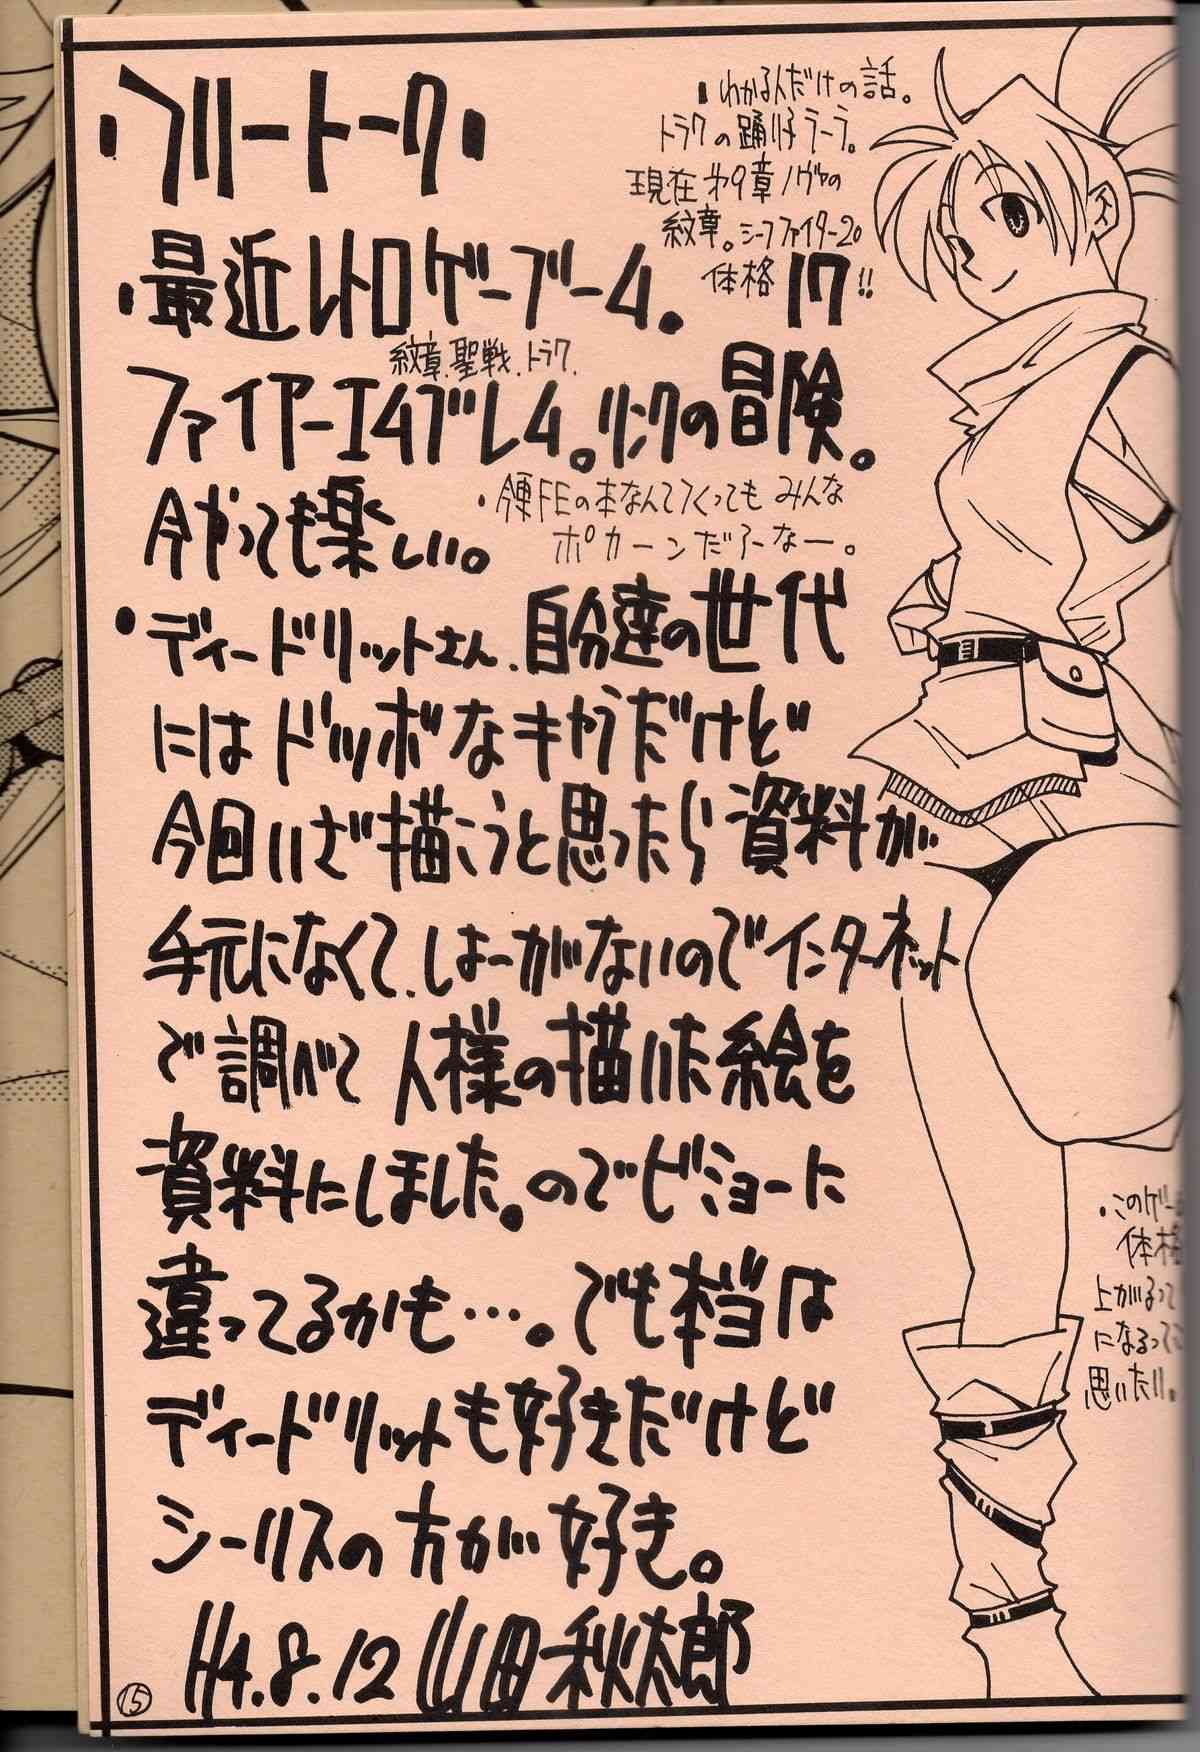 ・フリートーク・
・最近レトロゲーブーム。
紋章.聖戦.トラ7.
ファイヤーエムブレム。リンクの冒険。
今やっても楽しい。
・今更FEの本なんてつくってもみんな
ポカーンだろーなー。
・わかる人だけの話。
トラ7の踊り子ラーラ。
現在 オ9章ノヴァの
紋章。シーフファイター20
体格17!!
・ディードリットさん.自分達の世代
にはドツボなキャラだけど
今回いざ描こうと思ったら資料が
手元になくて.しょーがないのでインターネット
で調べて人様の描いた絵を
資料にしました。のでビミョーに
違ってるかも…。でも本当は
ディードリットも好きだけど
シーリスの方が好き。
H4.8.12 山田秋太郎
・このゲー
体格
上がるって
になるって
思いたい。
15